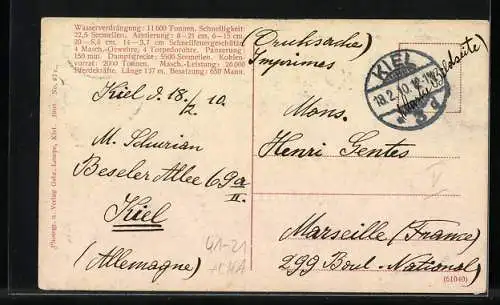 Wasserverdrängung: 11 600 Tonnen. Schnelligkeit
22,5 Seemeilen. Armierung: 8—21 cm, 6—15 cm
20—8,8 cm, 14—3,7 cm Schnellfeuergeschütze
4 Masch.-Gewehre, 4 Torpedorohre. Panzerung:
150 mm. Dampfstrecke: 5500 Seemeilen. Kohlen-
vorrat: 2000 Tonnen. Masch.-Leistung: 26 000
Pferdekräfte. Länge 137 m. Besatzung: 650 Mann.
(Drucksache)
Imprimés
KIEL
18.2.10.
Kiel d. 18./2. 10
M. Schurian
Beseler Allee 69a
II.
Kiel
(Allemagne)
41-21
Mons.
Henri Gentes
V
Marseille (France)
299 Boul. National
(51040)
Photogr. u. Verlag Gebr. Lempe, Kiel.